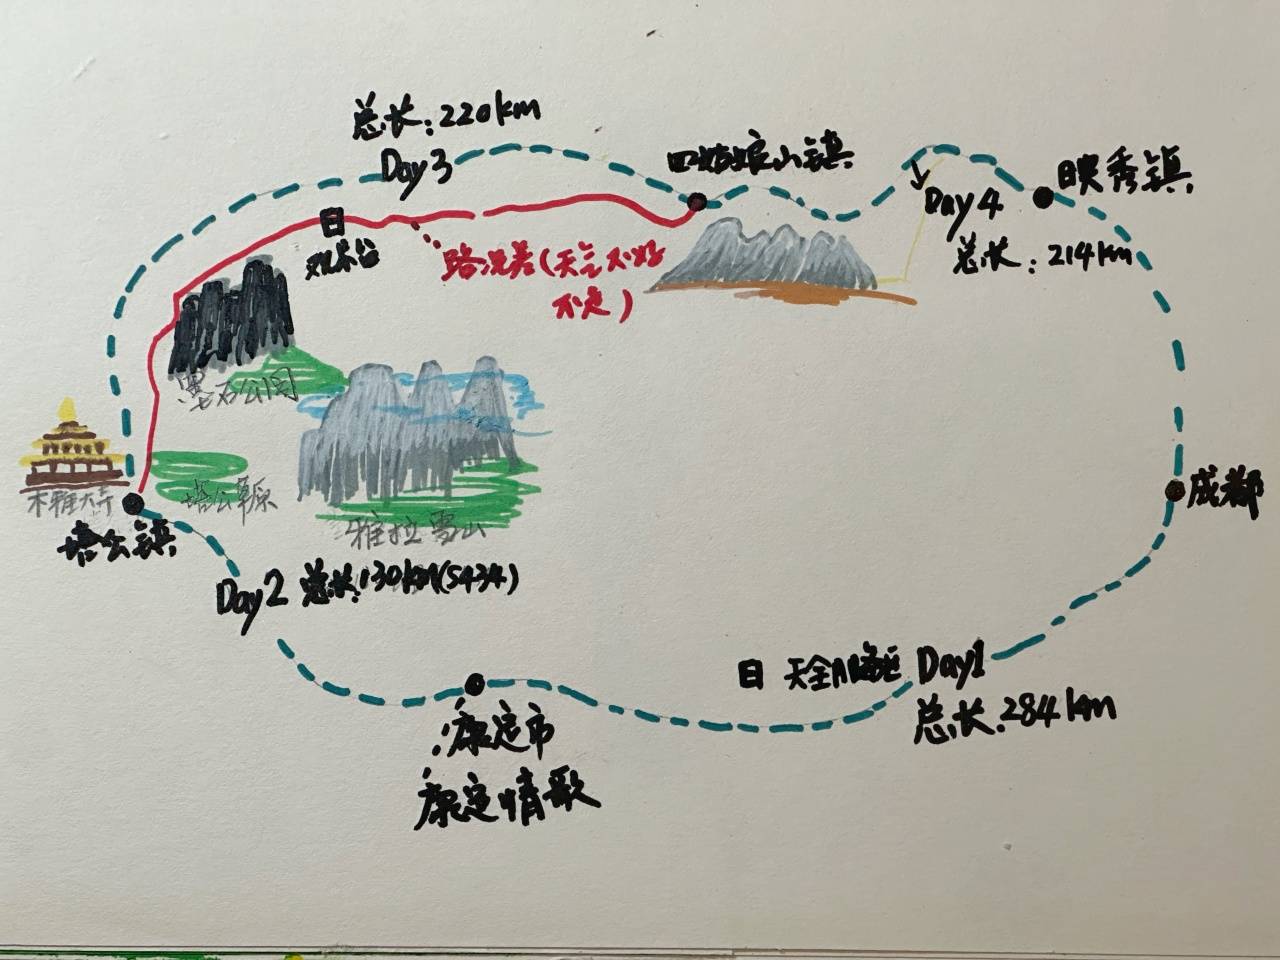 总长：220km
Day3
四姑娘山镇
映秀镇
Day4
总长：214km
观景台
路况差(天气不好
不走)
墨石公园
木雅大寺
塔公草原
雅拉雪山
塔公镇
成都
Day2 总长：130km(S434)
天全 Day1
总长：284km
康定市
康定情歌